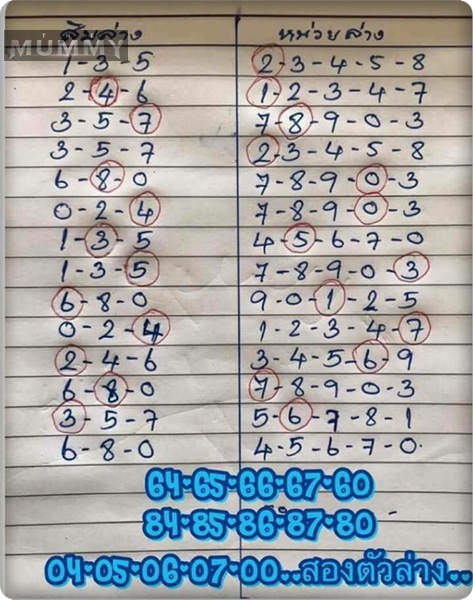 MUMMY
สิบล่าง หน่วยล่าง
1-3-5 2-3-4-5-8
2-4-6 1-2-3-4-7
3-5-7 7-8-9-0-3
3-5-7 2-3-4-5-8
6-8-0 7-8-9-0-3
0-2-4 7-8-9-0-3
1-3-5 4-5-6-7-0
1-3-5 7-8-9-0-3
6-8-0 9-0-1-2-5
0-2-4 1-2-3-4-7
2-4-6 3-4-5-6-9
6-8-0 7-8-9-0-3
3-5-7 5-6-7-8-1
6-8-0 4-5-6-7-0
64•65•66•67•60
84•85•86•87•80
04•05•06•07•00..สองตัวล่าง..